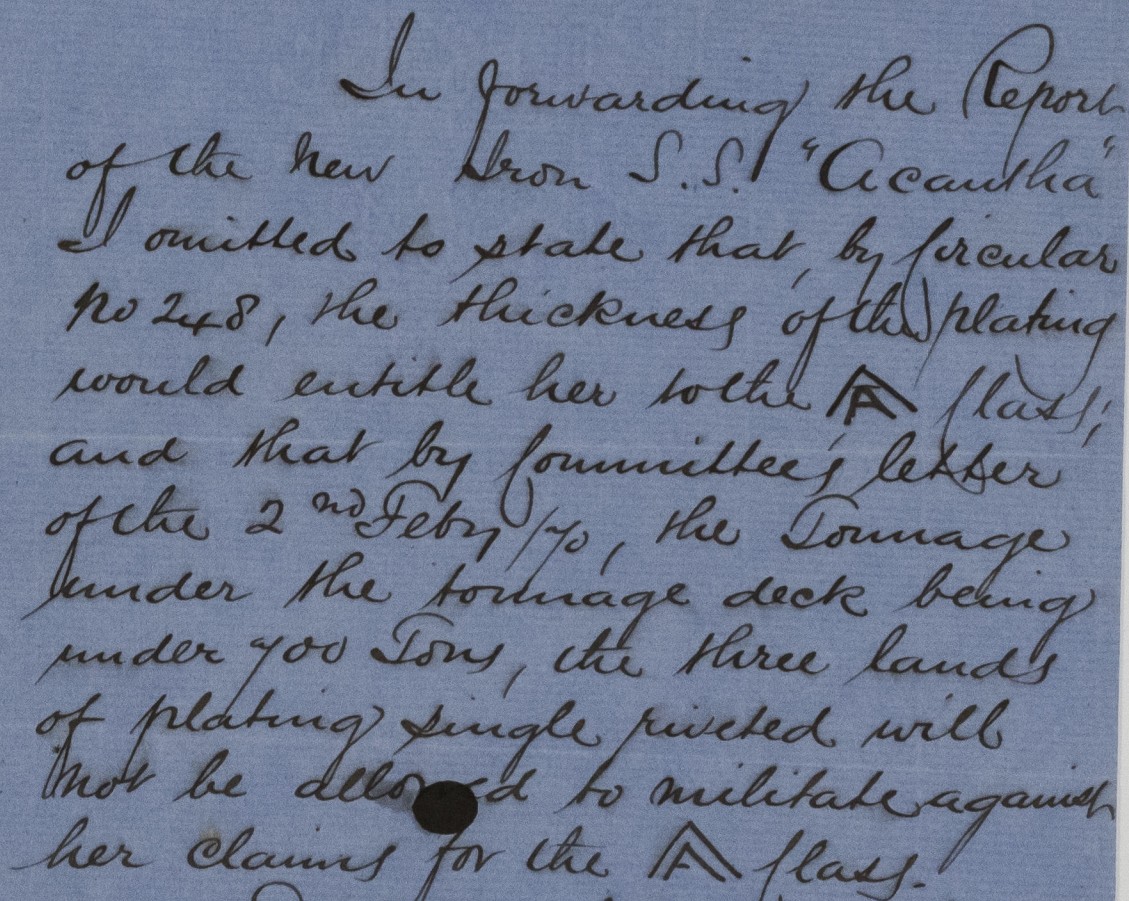 In forwarding the Report
of the New Iron S.S. "Acantha"
I omitted to state that, by Circular
No 248, the thickness of the plating
would entitle her to the A Class;
and that by Committee's letter
of the 2nd Feby /70, the Tonnage
under the tonnage deck being
under 700 Tons, the three lands
of plating single riveted will
not be allowed to militate against
her claims for the A Class.